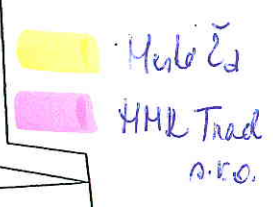 Město Žd
HMR Trad
s.r.o.